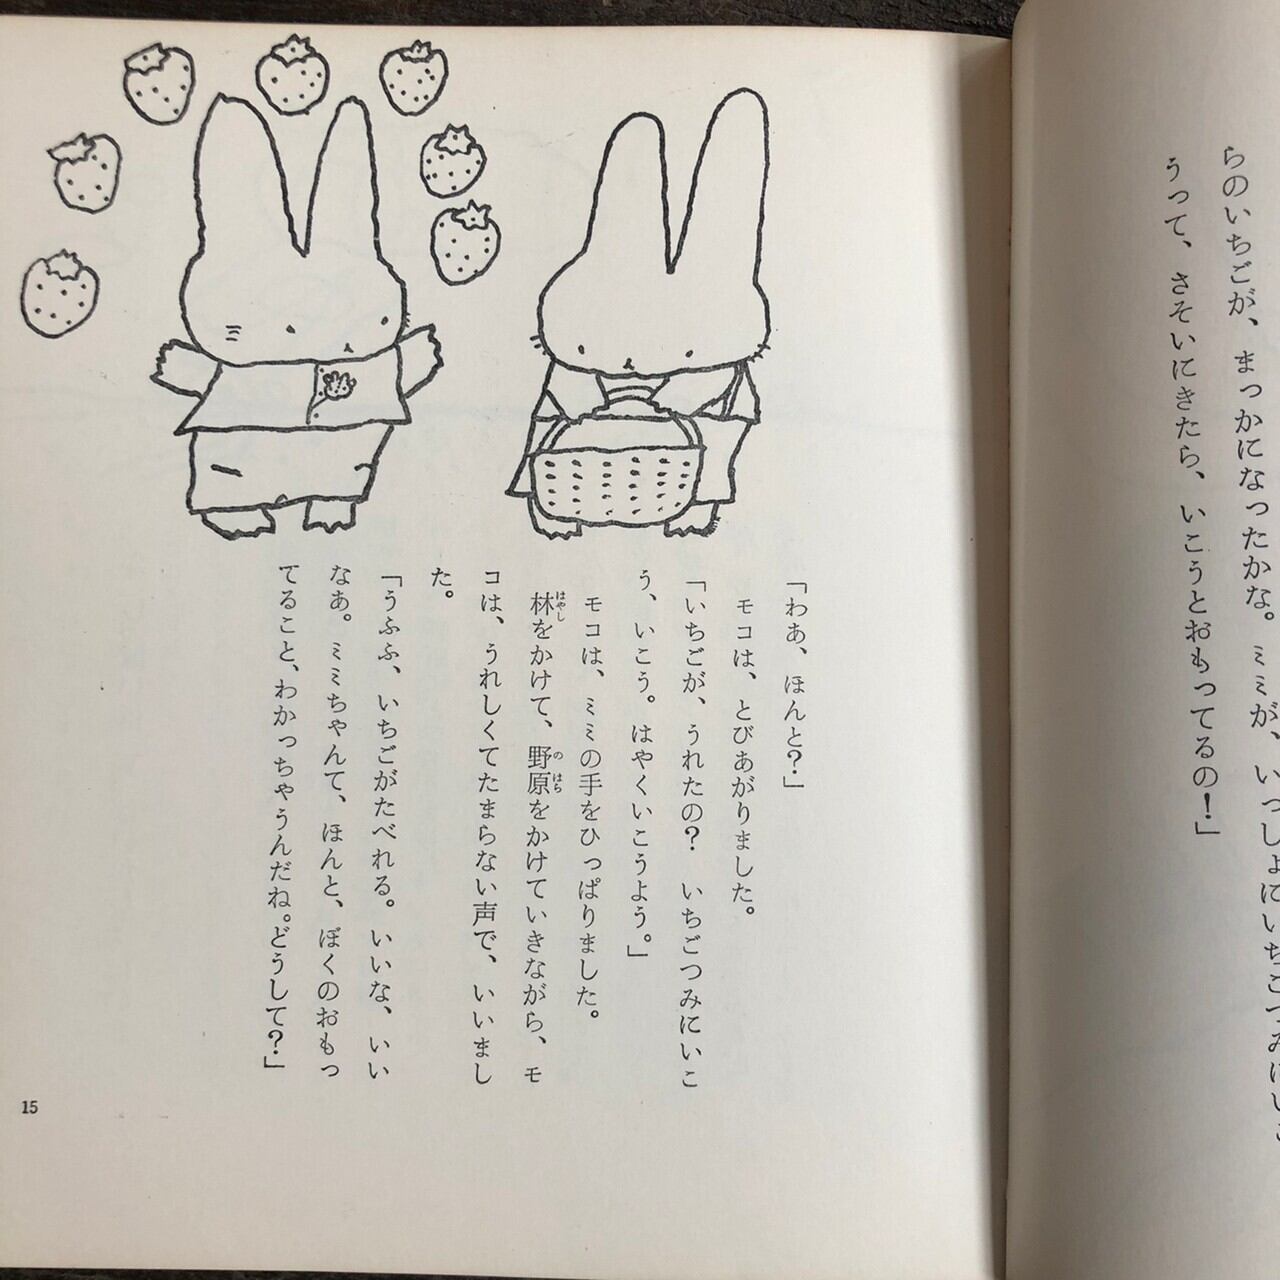 らのいちごが、まっかになったかな。ミミが、いっしょにいちごつみにいこ
うって、さそいにきたら、いこうとおもってるの！」
「わあ、ほんと？」
モコは、とびあがりました。
「いちごが、うれたの？　いちごつみにいこ
う、いこう。はやくいこうよう。」
モコは、ミミの手をひっぱりました。
林をかけて、野原をかけていきながら、モ
コは、うれしくてたまらない声で、いいまし
た。
「うふふ、いちごがたべれる。いいな、いい
なあ。ミミちゃんて、ほんと、ぼくのおもっ
てること、わかっちゃうんだね。どうして？」
はやし
の はら
15